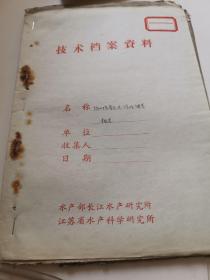 技术档案資料
名称
单位
收集人
日期
水产部长江水产研究所
江苏省水产科学研究所